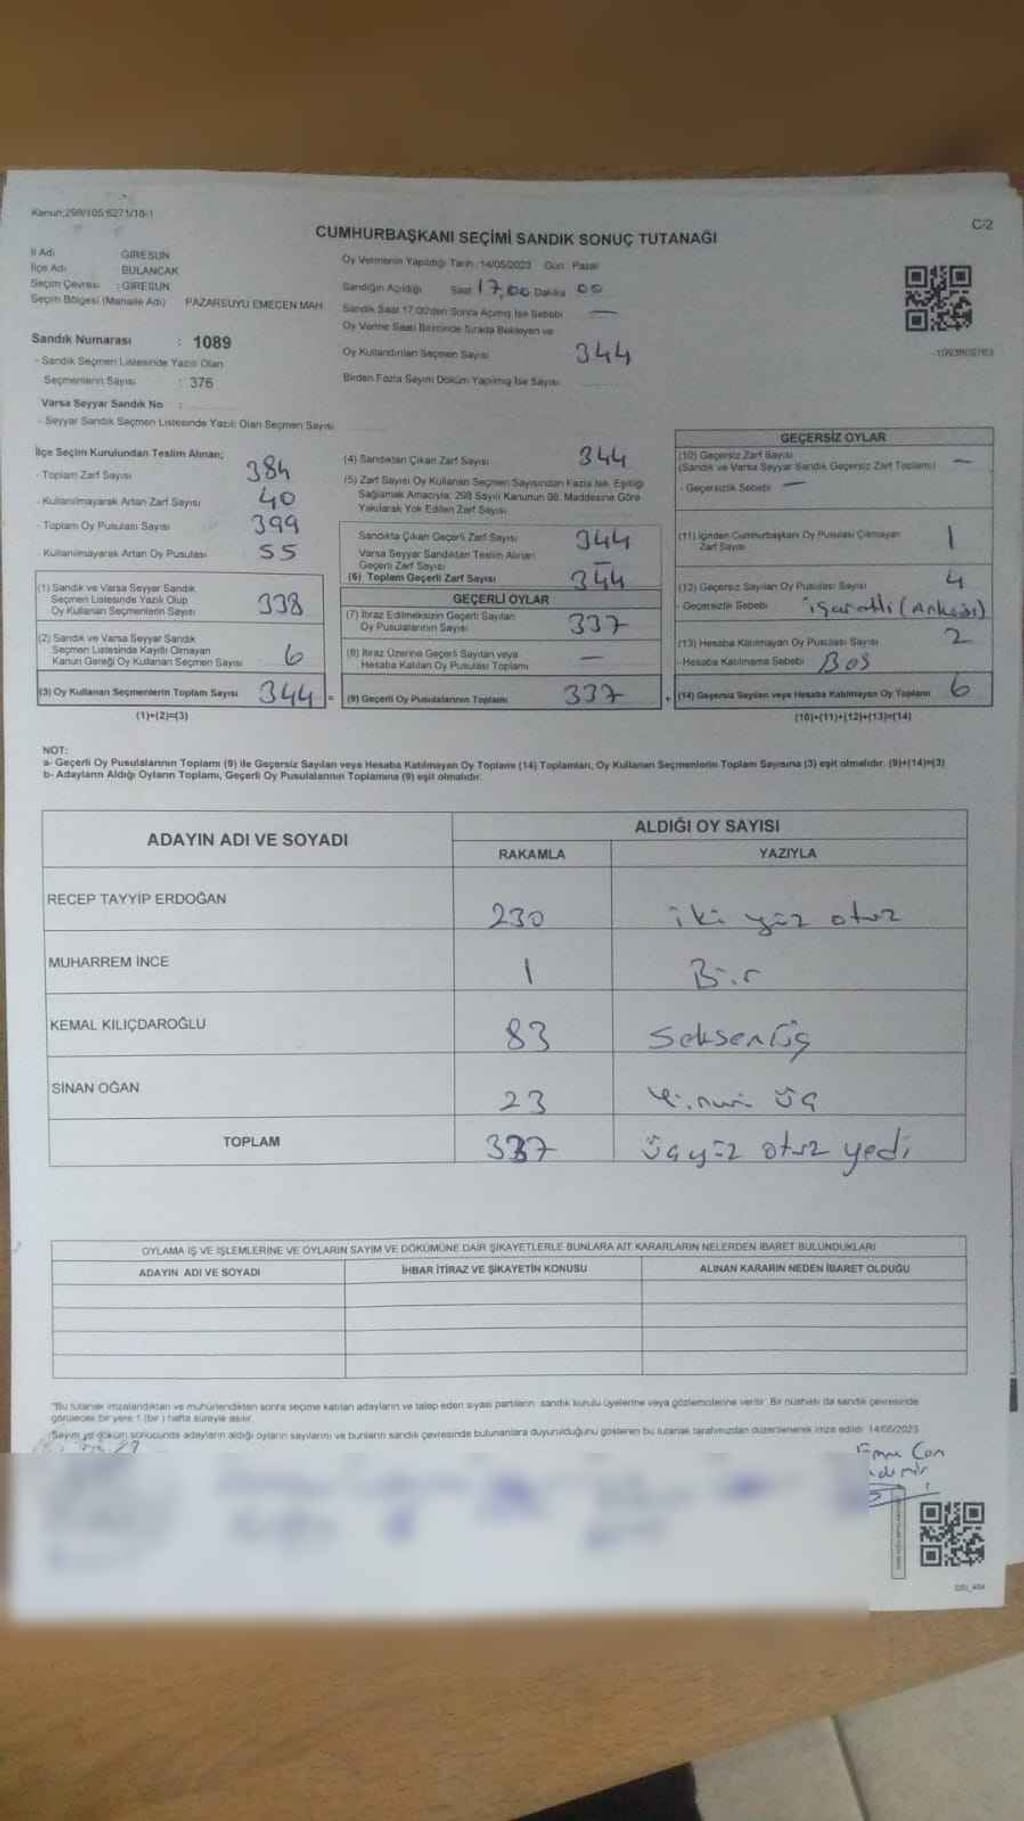 Kanun:298/105;6271/18-1
C/2
CUMHURBAŞKANI SEÇİMİ SANDIK SONUÇ TUTANAĞI
İl Adı GİRESUN
İlçe Adı BULANCAK
Seçim Çevresi : GİRESUN
Seçim Bölgesi (Mahalle Adı) PAZARSUYU EMECEN MAH.
Oy Vermenin Yapıldığı Tarih :14/05/2023 Gün : Pazar
Sandığın Açıldığı Saat 17,00 Dakika 00
Sandık Saat 17.00'den Sonra Açılmış İse Sebebi —
Oy Verme Saati Bitiminde Sırada Bekleyen ve
Oy Kullandırılan Seçmen Sayısı 344
Birden Fazla Sayım Döküm Yapılmış İse Sayısı
Sandık Numarası : 1089
- Sandık Seçmen Listesinde Yazılı Olan
Seçmenlerin Sayısı : 376
Varsa Seyyar Sandık No :
- Seyyar Sandık Seçmen Listesinde Yazılı Olan Seçmen Sayısı
İlçe Seçim Kurulundan Teslim Alınan;
- Toplam Zarf Sayısı 384
- Kullanılmayarak Artan Zarf Sayısı 40
- Toplam Oy Pusulası Sayısı 399
- Kullanılmayarak Artan Oy Pusulası 55
(1) Sandık ve Varsa Seyyar Sandık
Seçmen Listesinde Yazılı Olup
Oy Kullanan Seçmenlerin Sayısı 338
(2) Sandık ve Varsa Seyyar Sandık
Seçmen Listesinde Kayıtlı Olmayan
Kanun Gereği Oy Kullanan Seçmen Sayısı 6
(3) Oy Kullanan Seçmenlerin Toplam Sayısı 344 =
(1)+(2)=(3)
(4) Sandıktan Çıkan Zarf Sayısı 344
(5) Zarf Sayısı Oy Kullanan Seçmen Sayısından Fazla İse, Eşitliği
Sağlamak Amacıyla, 298 Sayılı Kanunun 98. Maddesine Göre
Yakılarak Yok Edilen Zarf Sayısı
Sandıkta Çıkan Geçerli Zarf Sayısı 344
Varsa Seyyar Sandıktan Teslim Alınan
Geçerli Zarf Sayısı —
(6) Toplam Geçerli Zarf Sayısı 344
GEÇERLİ OYLAR
(7) İtiraz Edilmeksizin Geçerli Sayılan
Oy Pusulalarının Sayısı 337
(8) İtiraz Üzerine Geçerli Sayılan veya
Hesaba Katılan Oy Pusulası Toplamı —
(9) Geçerli Oy Pusulalarının Toplamı 337 +
GEÇERSİZ OYLAR
(10) Geçersiz Zarf Sayısı
(Sandık ve Varsa Seyyar Sandık Geçersiz Zarf Toplamı) —
- Geçersizlik Sebebi —
(11) İçinden Cumhurbaşkanı Oy Pusulası Çıkmayan
Zarf Sayısı 1
(12) Geçersiz Sayılan Oy Pusulası Sayısı 4
- Geçersizlik Sebebi işaretli
(13) Hesaba Katılmayan Oy Pusulası Sayısı 2
- Hesaba Katılmama Sebebi Boş
(14) Geçersiz Sayılan veya Hesaba Katılmayan Oy Toplamı 6
(10)+(11)+(12)+(13)=(14)
NOT:
a- Geçerli Oy Pusulalarının Toplamı (9) ile Geçersiz Sayılan veya Hesaba Katılmayan Oy Toplamı (14) Toplamları, Oy Kullanan Seçmenlerin Toplam Sayısına (3) eşit olmalıdır. (9)+(14)=(3)
b- Adayların Aldığı Oyların Toplamı, Geçerli Oy Pusulalarının Toplamına (9) eşit olmalıdır.
ADAYIN ADI VE SOYADI
ALDIĞI OY SAYISI
RAKAMLA YAZIYLA
RECEP TAYYİP ERDOĞAN 230 iki yüz otuz
MUHARREM İNCE 1 Bir
KEMAL KILIÇDAROĞLU 83 Seksenüç
SİNAN OĞAN 23 Yirmi üç
TOPLAM 337 üçyüz otuz yedi
OYLAMA İŞ VE İŞLEMLERİNE VE OYLARIN SAYIM VE DÖKÜMÜNE DAİR ŞİKAYETLERLE BUNLARA AİT KARARLARIN NELERDEN İBARET BULUNDUKLARI
ADAYIN ADI VE SOYADI İHBAR İTİRAZ VE ŞİKAYETİN KONUSU ALINAN KARARIN NEDEN İBARET OLDUĞU
"Bu tutanak imzalandıktan ve mühürlendikten sonra seçime katılan adayların ve talep eden siyasi partilerin sandık kurulu üyelerine veya gözlemcilerine verilir. Bir nüshası da sandık çevresinde
görülecek bir yere 1 (bir ) hafta süreyle asılır.
Sayım ve döküm sonucunda adayların aldığı oyların sayılarını ve bunların sandık çevresinde bulunanlara duyurulduğunu gösteren bu tutanak tarafımızdan düzenlenerek imza edildi. 14/05/2023